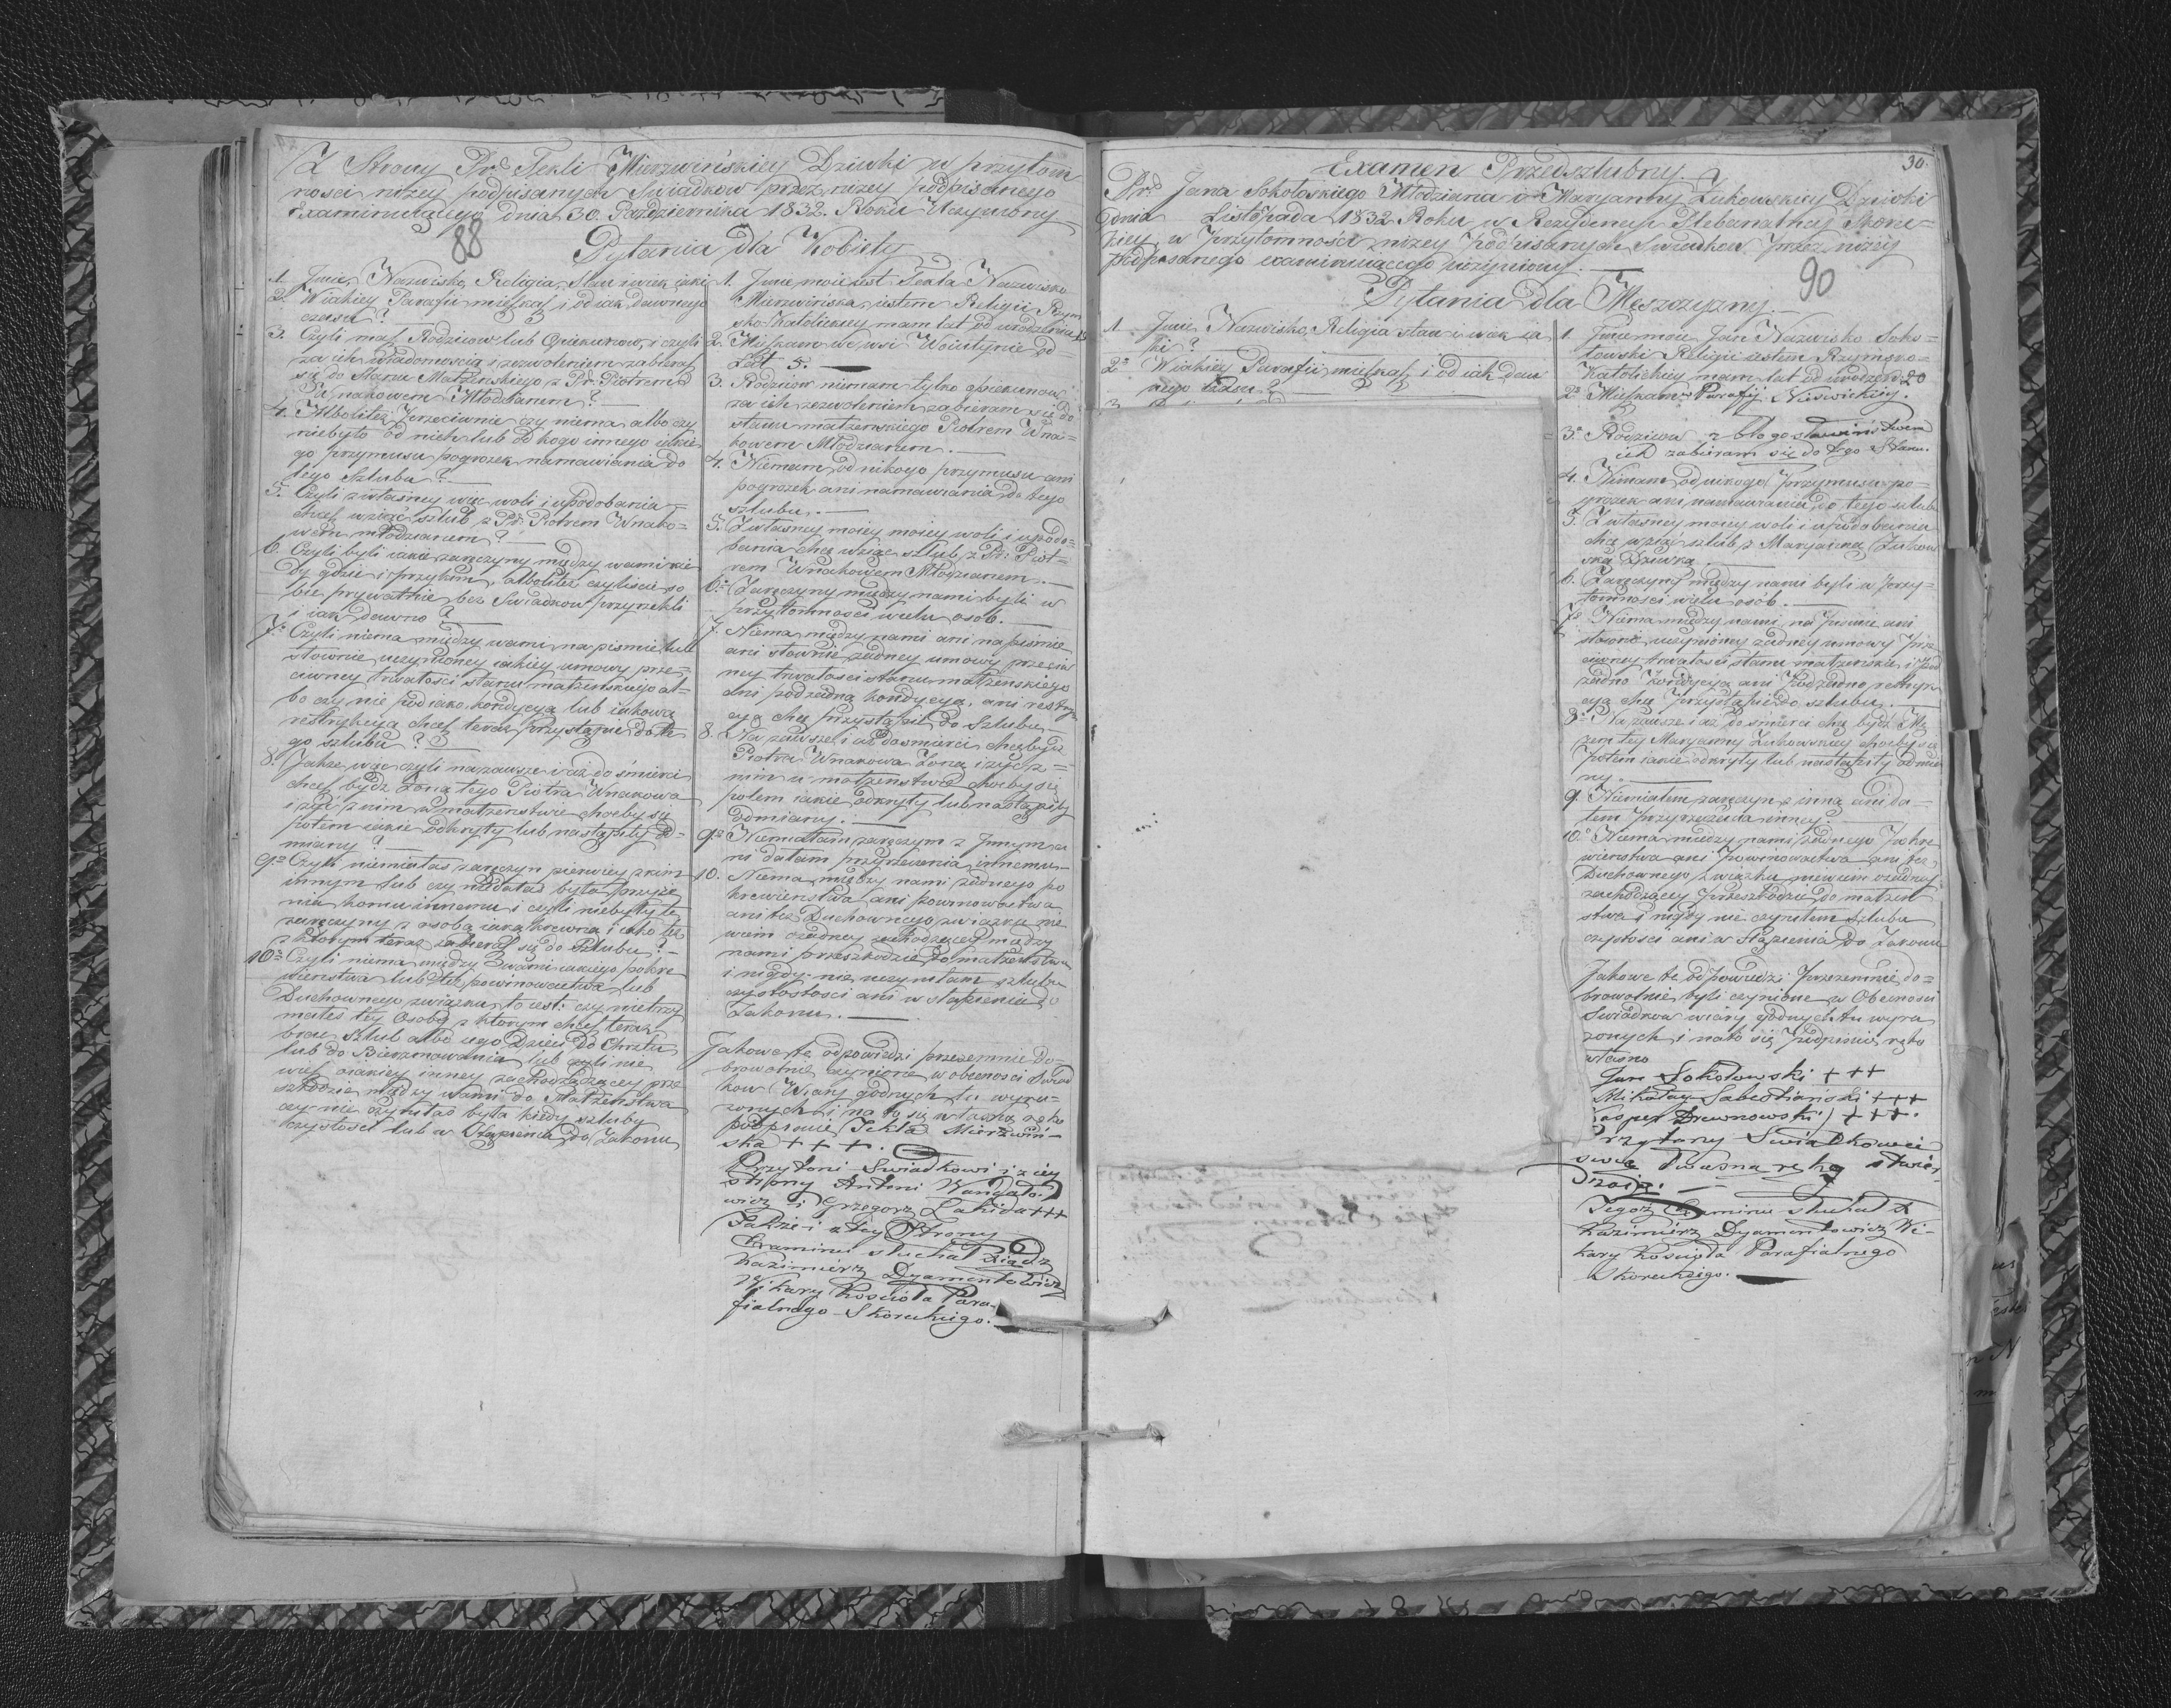 Z Strony Pr: Tekli Mierzwińskiey Dziewki w przytom
ności niżey podpisanych Swiadków przez niżey podpisanego
Examinuiącego dnia 30. Października 1832. Roku Uczyniony
88
Pytania dla Kobiety
1. Jmie, Nazwisko, Religia, Stan i wiek iaki
2. W iakiey Parafii mięszkasz i od iak dawnego
czasu?
3. Czyli masz Rodziców lub Opiekunów, i czyli
za ich wiadomością i zezwoleniem zabierasz
się do Stanu Małżeńskiego z Pr. Piotrem
Wnakowem Młodzianem?
4. Albo też Przeciwnie czy niema albo czy
niebyło od nich lub od kogo innego iakie
go przymusu pogrozek namawiania do
tego Szlubu?
5. Czyli z własney więc woli i upodobania
chcesz wziąć szlub z Pr. Piotrem Wnako=
wem młodzianem?
6. Czyli byli iakie zaręczyny między wami kie
dy gdzie i przy kim, albo też czyliście so
bie prywatnie bez Swiadków przyrzekli
i iak dawno?
7. Czyli niema między wami na pismie lub
słownie uczynioney iakiey umowy prze=
ciwney trwałości stanu małżenskiego al=
bo czy nie pod iaką kondycyą lub iakową
restrykcyą chcesz teraz przystąpić do te
go szlubu?
8. Jakże więc czyli na zawsze i aż do śmierci
chcesz bydź żoną tego Piotra Wnakowa
i żyć z nim w małżenstwie choćby się
potem iakie odkryły lub nastąpiły od=
miany?
9. Czyli niemiałaś zaręczyn pierwiey z kim
innym lub czy niedałaś była przyrze
nia komu innemu i czyli niebyły te
zaręczyny z osobą iaką krewną i iako też
z ktorym teraz zabierasz się do Szlubu?
10. Czyli niema między wami iakiego pokre
wienstwa lub też powinowactwa lub
Duchownego związku to iest: czy nietrzy
małeś tey Osoby z ktorym chcesz teraz
brać Szlub albo iego Dzieci do Chrztu
lub do Bierzmowania lub czyli nie
wiesz o iakiey inney zachodzącey prze
szkodzie między wami do Małżenstwa
czy nie czyniłaś była kiedy szluby
czystości lub w Stąpienia do Zakonu
1. Jmie moie iest Tekla Nazwisko
Mierzwińska iestem Religii Rzym
sko-Katolickiey mam lat od urodzenia 19
2. Mięszkam we wsi Woiutynie od
Lat 5.
3. Rodziców niemam tylko opiekunów
za ich zezwoleniem zabieram się do
stanu małżenskiego Piotrem Wna=
kowem Młodzianem.
4. Niemam od nikogo przymusu ani
pogrozek ani namawiania do tego
szlubu.
5. Z własney moiey moiey woli i upodo=
bania chcę wziąć szlub z Pr: Piot=
rem Wnakowem Młodzianem.
6. Zaręczyny między nami byli w
przytomności wielu osób.
7. Niema między nami ani na pismie
ani słownie żadney umowy przeciw
ney trwałości stanu małżenskiego
ani pod żadną kondycyą, ani restryk
cyą chcę przystąpić do Szlubu.
8. Na zawsze i aż do śmierci chcę bydź
Piotra Wnakowa Żoną i żyć z=
nim w małżenstwie choćby się
potem iakie odkryły lub nastąpiły
odmiany.
9. Niemiałam zaręczyn z Jnnym a
ni dałam przyrzeczenia innemu
10. Niema między nami żadnego po
krewienstwa ani powinowactwa
ani też Duchownego związku nie
wiem o żadney zachodzącey między
nami przeszkodzie do małżenstwa
i nigdy nie uczyniłam szlubu
czystości ani w stąpienia do
Zakonu.
Jakowe te odpowiedzi przezemnie do=
browolnie czynione w obecności Swiad
ków Wiary godnych tu wyra=
żonych i na to się własną ręką
podpisuię Tekla Mierzwiń=
ska + + +.
Przytoni Swiadkowi i z iey
strony Antoni Wandało=
wicz i Grzegorz Łahida +++
Także i z tey Strony
Examinu słuchał Xiądz
Kazimierz Dyamentowicz
Wikary Kościoła Para=
fialnego Skoreckiego.
30.
Examen Przedszlubny
Pr. Jana Sokołoskiego Młodziana i Maryanny Żukowskiey Dziewki
dnia Listopada 1832 Roku w Rezydencyi Plebanalney Skore=
ckiey w przytomności niżey podpisanych Swiadków przez niżey
podpisanego examinuiącego uczyniony.
90
Pytania dla Męszczyzny
1. Jmie Nazwisko, Religia stan i wiek ia
ki?
2. W iakiey Parafii mięszkasz i od iak daw
nego czasu?
1. Jmie moie Jan Nazwisko Soko=
łowski Religii iestem Rzymsko=
Katolickiey mam lat od urodzen. 20
2. Mięszkam w Parafij Nieswickiey.
3. Rodziców z błogosławieństwem
ich zabieram się do tego Stanu.
4. Niemam od nikogo przymusu po=
grozek ani namawiania do tego szlubu
5. Z własney moiey woli i upodobania
chcę wziąć szlub z Maryanną Żukow
ską Dziewką
6. Zaręczyny między nami byli w przy=
tomności wielu osób.
7. Niema między nami na pismie ani
słownie uczynioney żadney umowy prze
ciwney trwałości stanu małżenskiego i pod
żadną kondycyą ani pod żadną restryk
cyą chcę przystąpić do szlubu.
8. Na zawsze i aż do śmierci chcę bydź Mę
żem tey Maryanny Żukowskiey choćby się
potem iakie odkryły lub nastąpiły odmia
ny.
9. Niemiałem zaręczyn z inną ani da=
łem przyrzeczenia inney.
10. Niema między nami żadnego pokre
wienstwa ani powinowactwa ani też
Duchownego związku niewiem o żadney
zachodzącey przeszkodzie do małżen
stwa i nigdy nie czyniłem szlubu
czystości ani w stąpienia do Zakonu
Jakowe te odpowiedzi przezemnie do=
browolnie byli czynione w Obecności
Swiadków wiary godnych tu wyra
żonych i na to się podpisuię ręką
własną
Jan Sokołowski + + +
Mikołay Sabestianski +++
Kasper Drewnowski + + +.
Przytomny Swiadkowie
swoie własną ręką stwier
dzaią.
Tegoż Examinu słuchał X
Kazimierz Dyamentowicz Wi=
kary Kościoła Parafialnego
Skoreckiego.